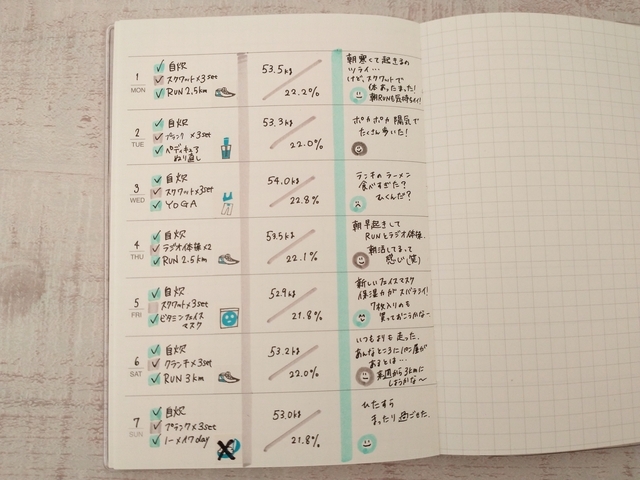 1
MON
自炊
スクワット×3set
RUN 2.5km
53.5kg
22.2%
朝寒くて起きるの
ツライ…
けど、スクワットで
体あったまった!
朝RUNも気持ちイイ!
2
TUE
自炊
プランク ×3set
ペディキュア
ぬり直し
53.3kg
22.0%
ポカポカ陽気で
たくさん歩いた!
3
WED
自炊
スクワット×3set
YOGA
54.0kg
22.8%
ランチのラーメン
食べすぎた?
むくんだ?
4
THU
自炊
ラジオ体操×2
RUN 2.5km
53.5kg
22.1%
朝早起きして
RUNとラジオ体操。
朝活してるって
感じ(笑)
5
FRI
自炊
スクワット×3set
ビタミンフェイス
マスク
52.9kg
21.8%
新しいフェイスマスク
保湿力がスバラシイ!
7枚入りのも
買っておこうかな〜
6
SAT
自炊
クランチ×3set
RUN 3km
53.2kg
22.0%
いつもよりも走った。
あんなところにパン屋が
あるとは…
来週から3kmに
しようかな〜
7
SUN
自炊
プランク×3set
ノーメイクday
53.0kg
21.8%
ひたすら
まったり過ごせた。